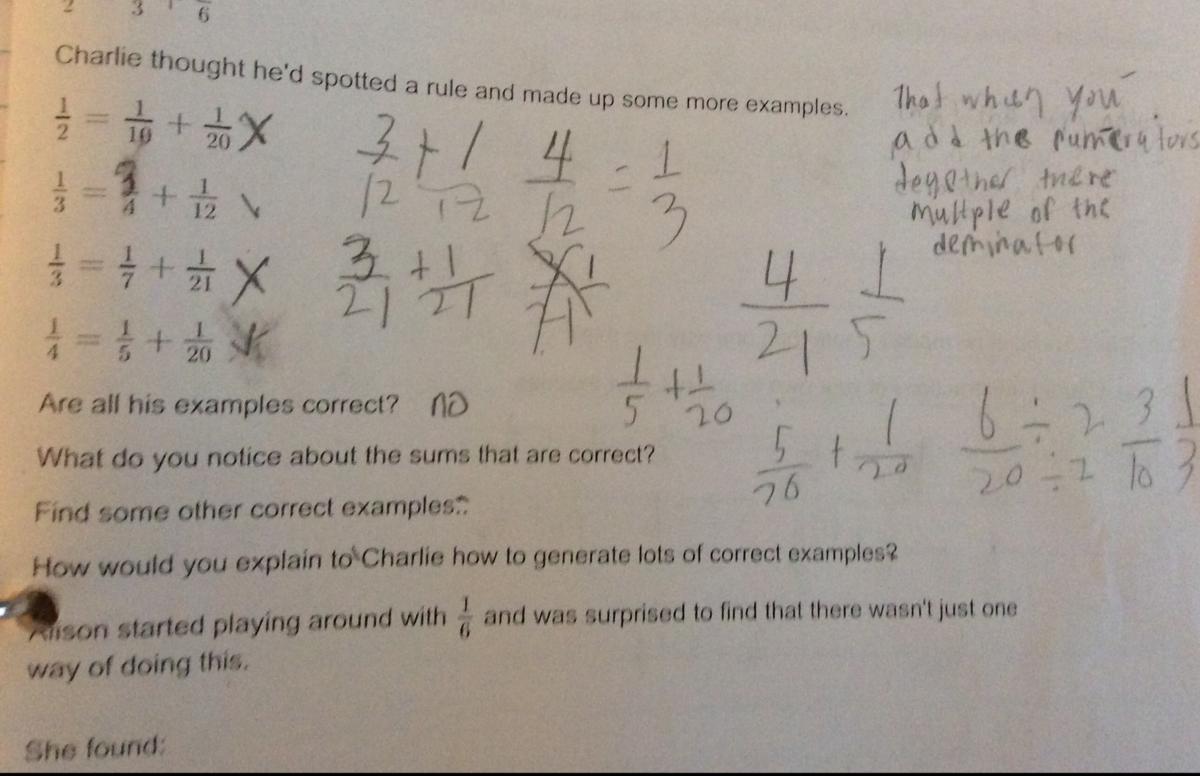 2 3 + 6
Charlie thought he'd spotted a rule and made up some more examples.
That when you
add the numerators
together there
multple of the
deminator
1/2 = 1/10 + 1/20 X
3/12 + 1/12 4/12 = 1/3
1/3 = 3/4 + 1/12 ✓
1/3 = 1/7 + 1/21 X
3/21 + 1/21
4/21 1/5
1/4 = 1/5 + 1/20
1/5 + 1/20
Are all his examples correct? no
5/20 + 1/20 6/20 ÷ 2/÷ 2 3/10 1/3
What do you notice about the sums that are correct?
Find some other correct examples.
How would you explain to Charlie how to generate lots of correct examples?
Alison started playing around with 1/6 and was surprised to find that there wasn't just one
way of doing this.
She found: